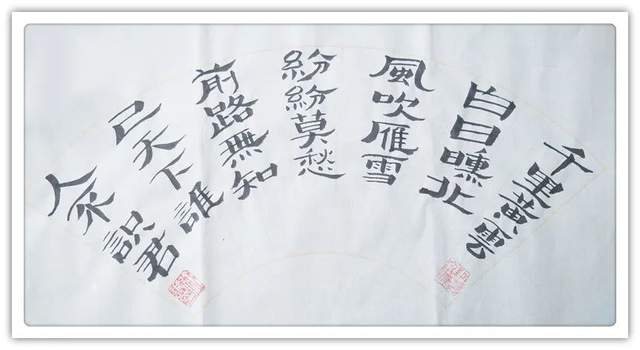 千里黄雲
白日曛北
風吹雁雪
紛紛莫愁
前路無知
己天下誰
人不识君